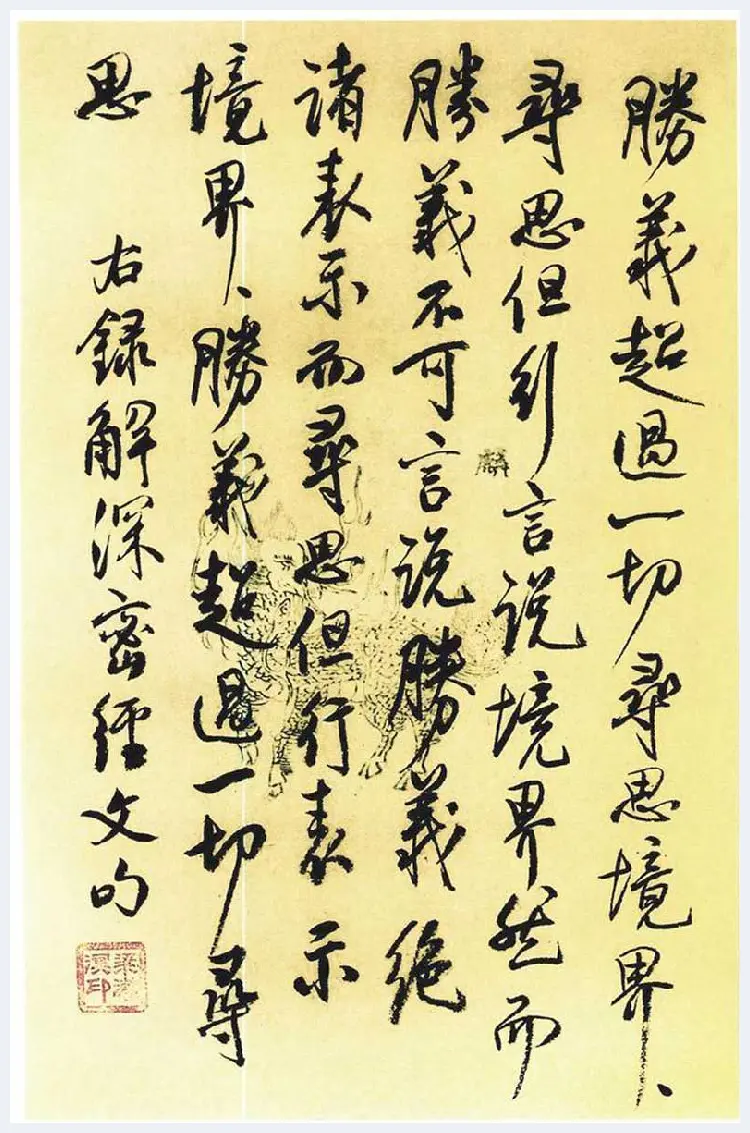 勝義超過一切尋思境界、
尋思但行言說境界然而
勝義不可言說勝義絕
諸表示而尋思但行表示
境界、勝義超過一切尋
思 右錄解深密經文句
梁漱溟印